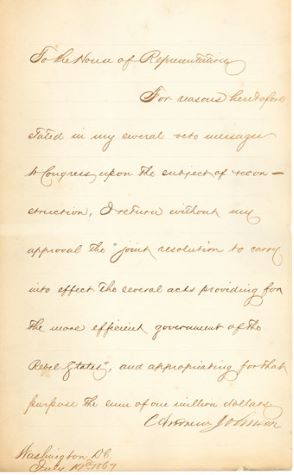 To the House of Representatives
For reasons heretofore
stated in my several veto messages
to Congress upon the subject of recon-
struction, I return without my
approval the "joint resolution to carry
into effect the several acts providing for
the more efficient government of the
Rebel States", and appropriating for that
purpose the sum of one million dollars.
Andrew Johnson
Washington D.C.
July 19th 1867